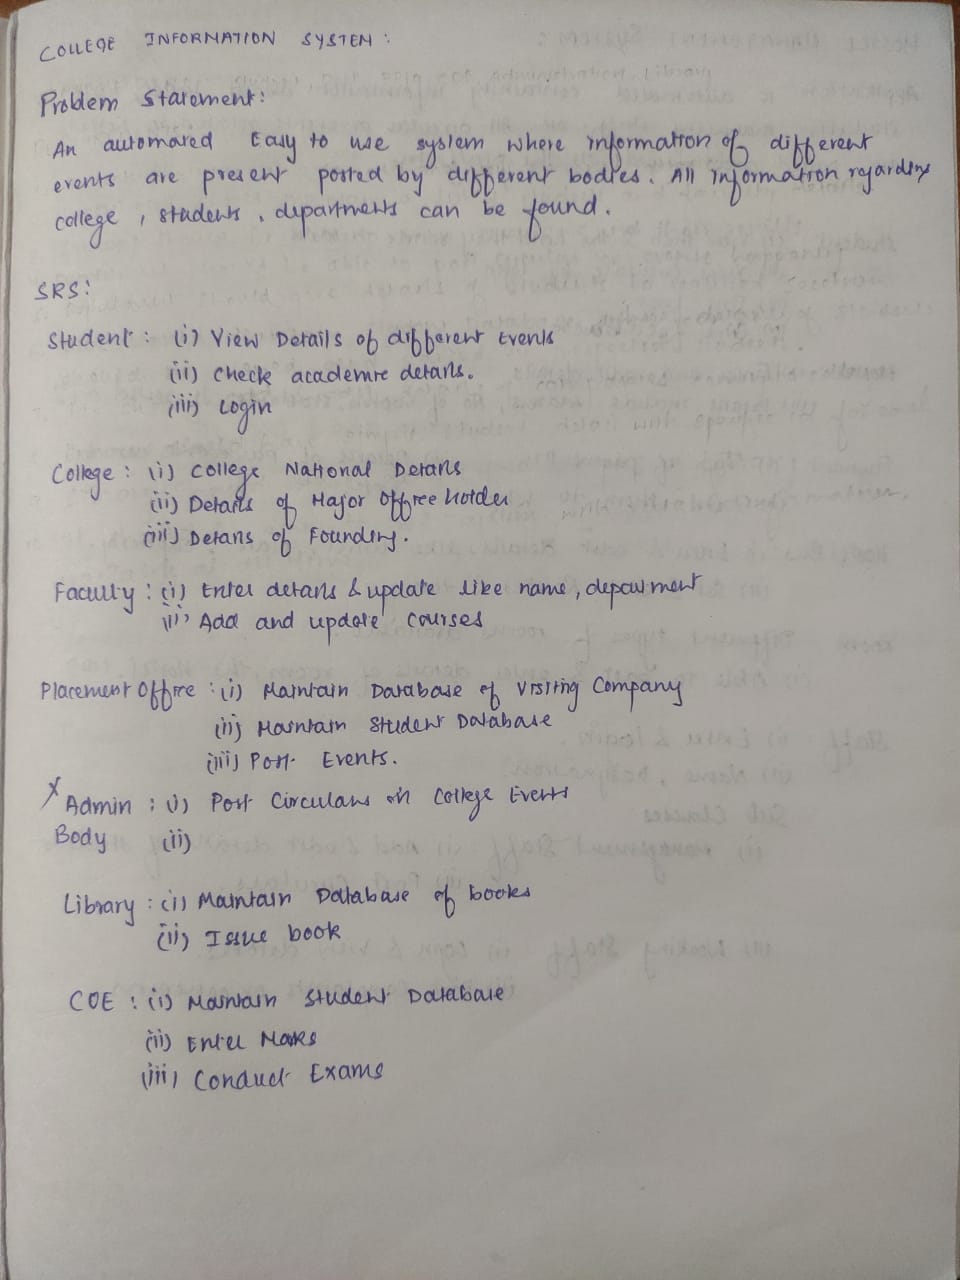 COLLEGE INFORMATION SYSTEM :
Problem Statement:
An automated Easy to use system where information of different
events are present posted by different bodies. All Information regarding
college , students , departments can be found.
SRS:
Student : (i) View Details of different Events
(ii) Check academic details.
(iii) Login
College : (i) College National Details
(ii) Details of Major Office holder
(iii) Details of Founding.
Faculty : (i) Enter details & update like name, department
(ii) Add and update courses
Placement Office : (i) Maintain Database of Visiting Company
(ii) Maintain Student Database
(iii) Post Events.
X Admin : (i) Post Circulars on College Events
Body (ii)
Library : (i) Maintain Database of books
(ii) Issue book
COE : (i) Maintain Student Database
(ii) Enter Marks
(iii) Conduct Exams